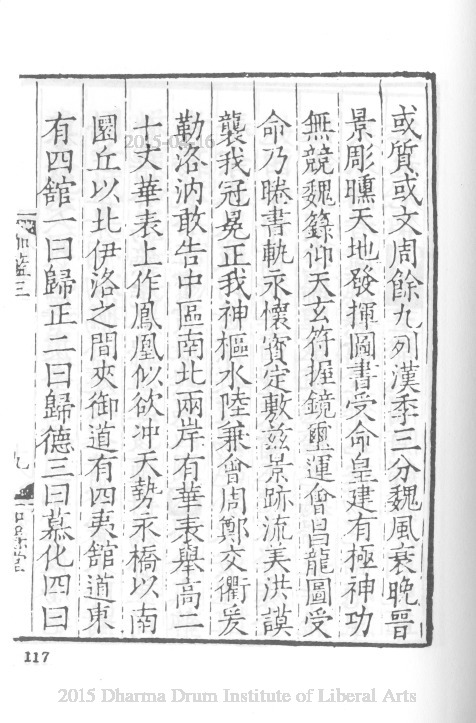 或質或文周餘九列漢季三分魏風衰晚晉
景彫曛天地發揮圖書受命皇建有極神功
無競魏籙仰天玄符握鏡璽運會昌龍圖受
命乃睠書軌永懷寳定敷茲景跡流美洪謨
襲我冠冕正我神樞水陸兼會周鄭交衢爰
勒洛汭敢告中區南北兩岸有華表舉高二
十丈華表上作鳳凰似欲冲天勢永橋以南
圜丘以北伊洛之間夾御道有四夷舘道東
有四舘一曰歸正二曰歸德三曰慕化四曰
伽藍三
九
117
2015 Dharma Drum Institute of Liberal Arts